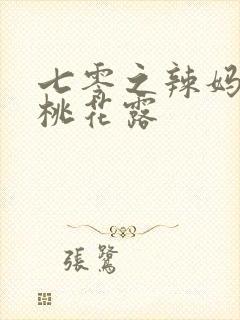 七零之辣妈
桃花露
張鷺